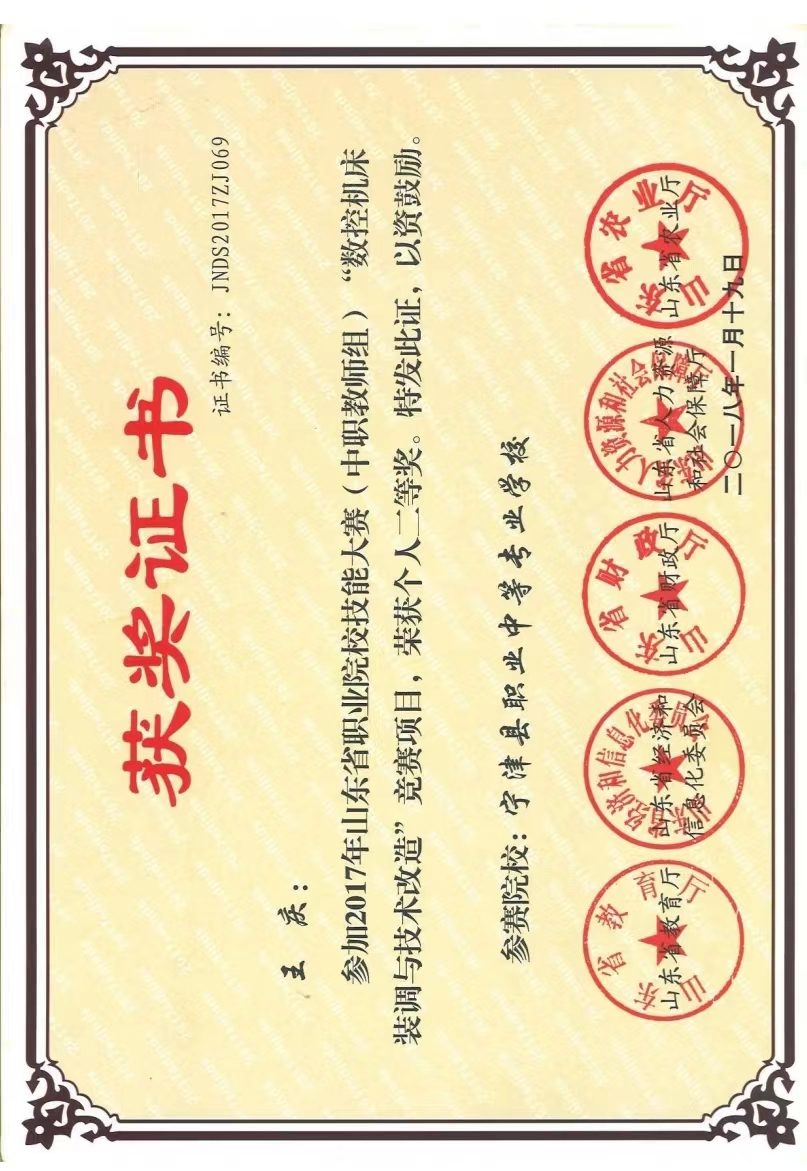 获奖证书
证书编号：JNDS2017ZJ069
王庆：
参加2017年山东省职业院校技能大赛（中职教师组）“数控机床
装调与技术改造”竞赛项目，荣获个人二等奖。特发此证，以资鼓励。
参赛院校：宁津县职业中等专业学校
山东省教育厅
山东省经济和
信息化委员会
山东省财政厅
山东省人力资源
和社会保障厅
山东省农业厅
二〇一八年一月十九日
山东省教育厅
山东省财政厅
山东省农业厅